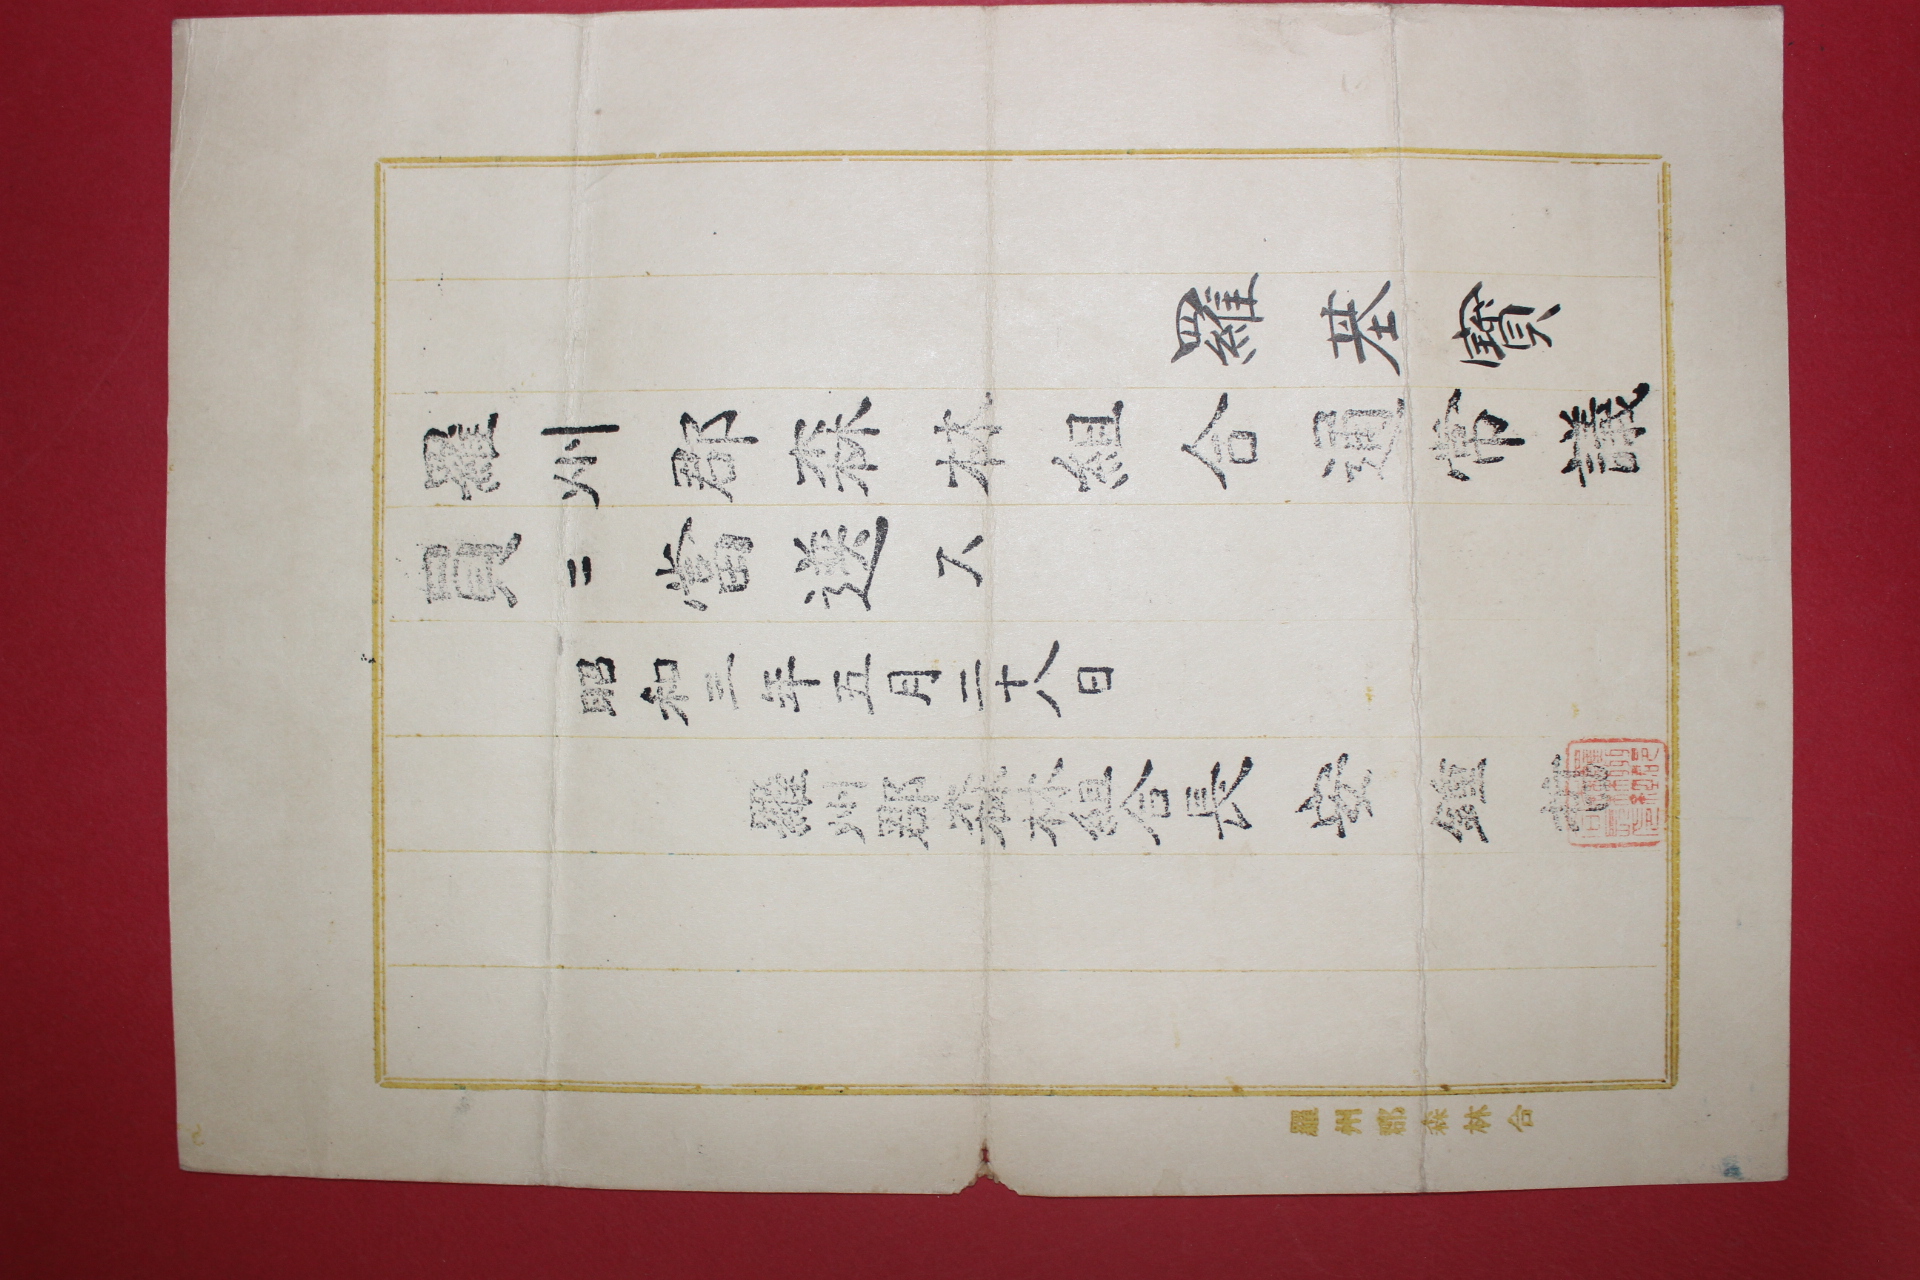 羅基寶
羅州郡森林組合通常議
員ニ當選ス
昭和三年五月二十八日
羅州郡森林組合長安鍾
羅州郡森林合